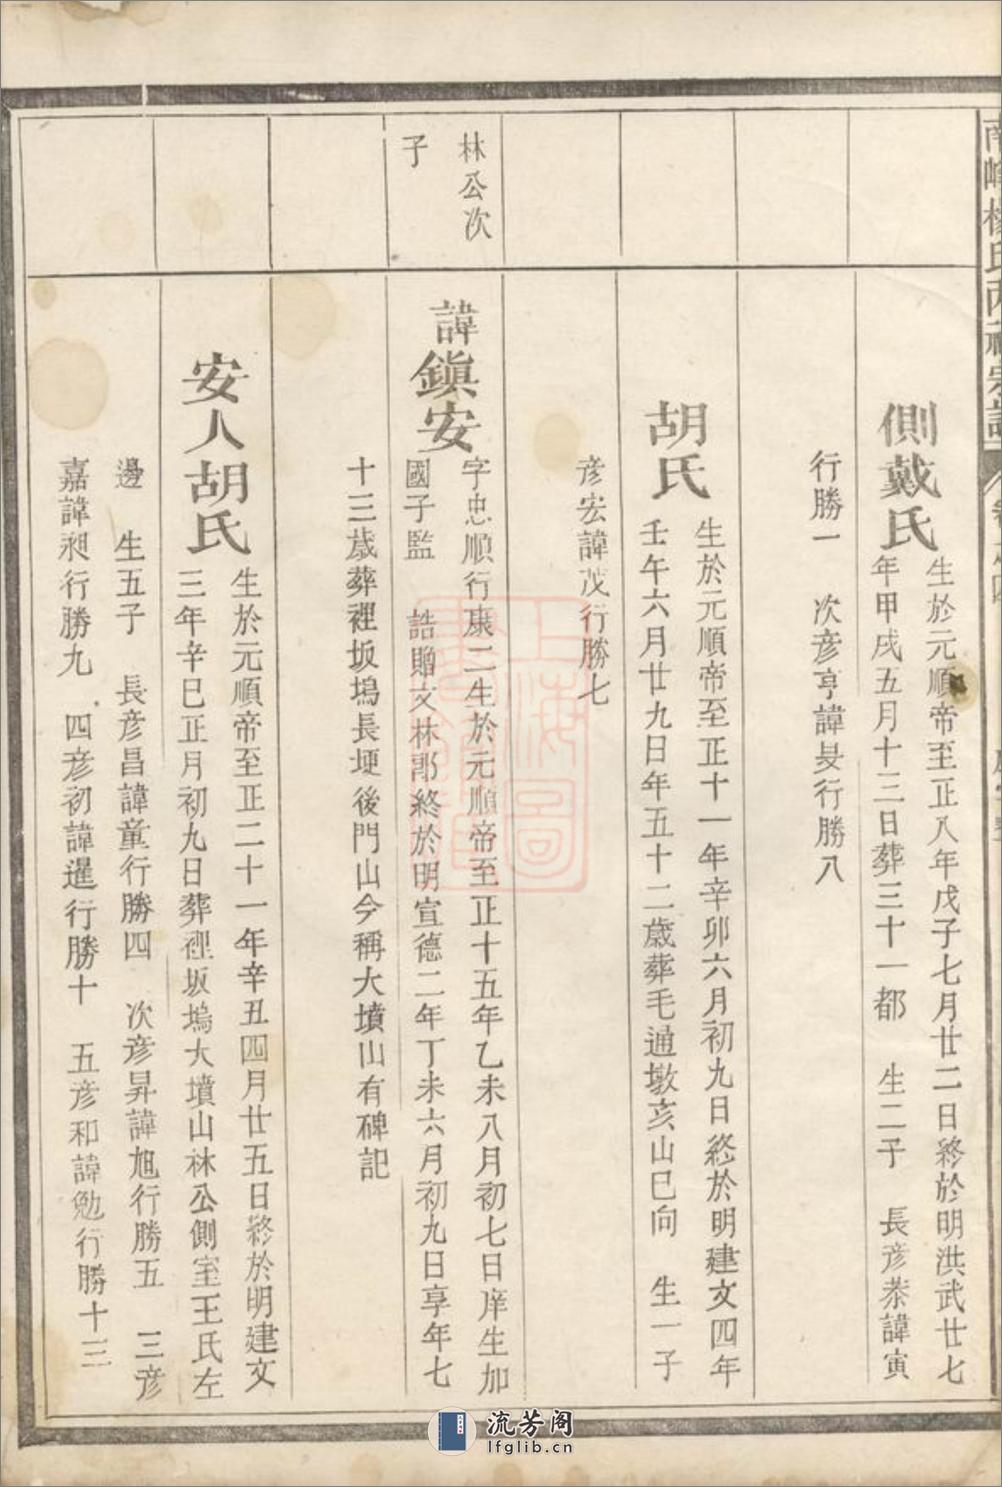 側戴氏
生於元順帝至正八年戊子七月廿二日終於明洪武廿七
年甲戌五月十三日葬三十一都　生二子　長彦恭諱寅
行勝一　次彦亨諱旻行勝八
胡氏
生於元順帝至正十一年辛卯六月初九日終於明建文四年
壬午六月廿九日年五十二歲葬毛通墩亥山巳向　生一子
彦宏諱茂行勝七
林公次
子
諱鎭安
字忠順行康二生於元順帝至正十五年乙未八月初七日庠生加
國子監　誥贈文林郎終於明宣德二年丁未六月初九日享年七
十三歲葬裡坂塢長堘後門山今稱大墳山有碑記
安人胡氏
生於元順帝至正二十一年辛丑四月廿五日終於明建文
三年辛巳正月初九日葬裡坂塢大墳山林公側室王氏左
邊　生五子　長彦昌諱童行勝四　次彦昇諱旭行勝五　三彦
嘉諱昶行勝九　四彦初諱暹行勝十　五彦和諱勉行勝十三
上海圖
流芳阁
lfglib.cn